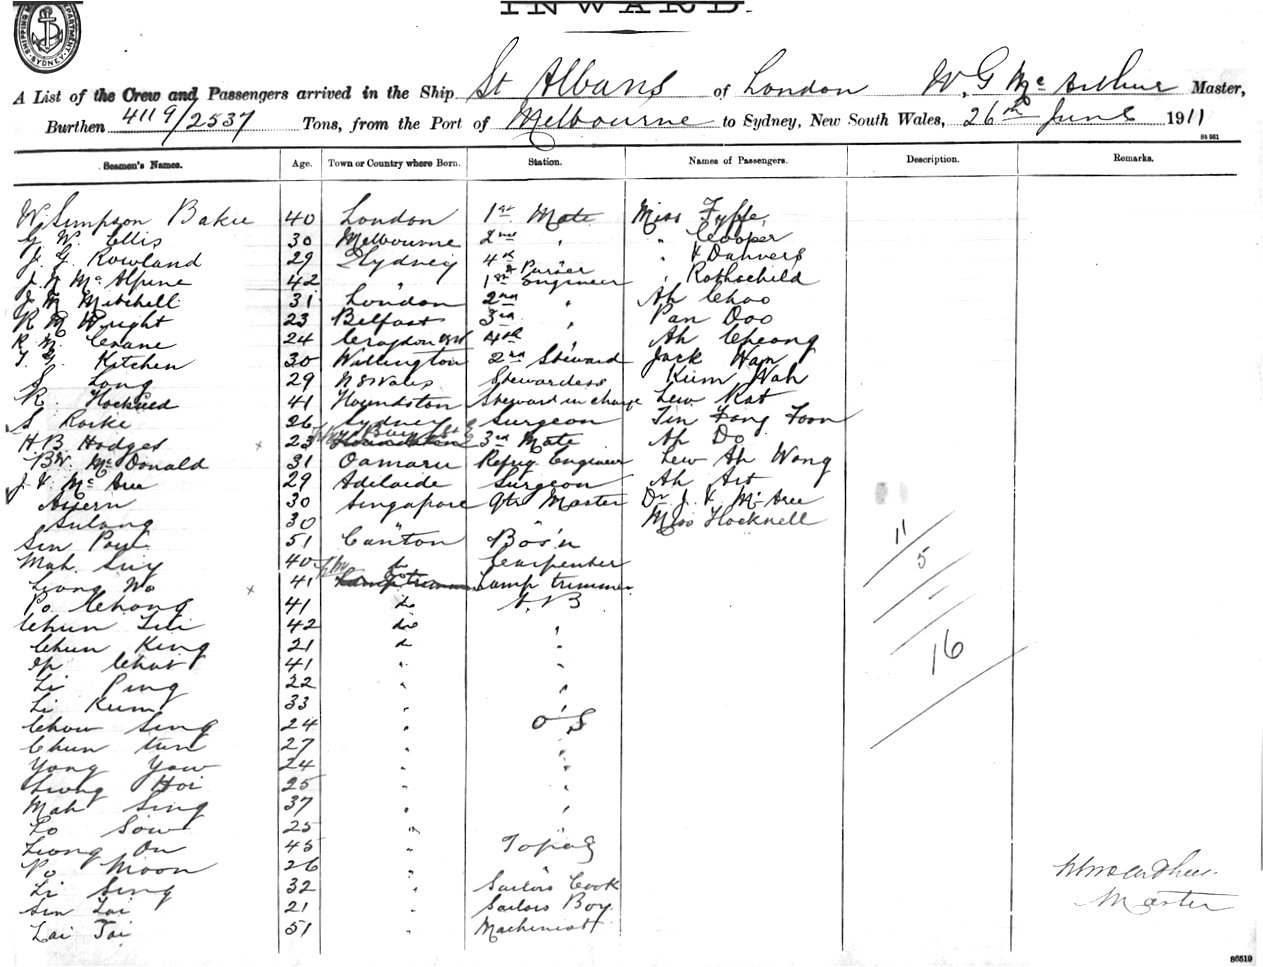 INWARD.
SHIPPING DEPARTMENT SYDNEY
A List of the Crew and Passengers arrived in the Ship St Albans of London W. G McArthur Master,
Burthen 4119/2537 Tons, from the Port of Melbourne to Sydney, New South Wales, 26th June 1911
Seamen's Names. Age. Town or Country where Born. Station. Names of Passengers. Description. Remarks.
W. Simpson Baker 40 London 1st Mate Miss Fyffe
G. W. Ellis 30 Melbourne 2nd " " Cooper
J. G. Rowland 29 Sydney 4th " " Danvers
& Purser
J. McAlpine 42 " 1st Engineer " Rothschild
J. M. Mitchell 31 London 2nd " Ah Choo
R M Wright 23 Belfast 3rd " Pan Doo
R. M. Crane 24 Croydon NSW 4th " Ah Cheong
Kitchen 30 Wellington 2nd Steward Jack Wan
S Long 29 N S Wales Stewardess Kum Wah
R. 41 Houndston Steward in charge Lew Kat
S Rorke 26 Sydney Surgeon Tin Fong Foon
H B Hodges x 23 3rd Mate Ah Do
McDonald 31 Oamaru Refrig Engineer Lew Ah Wong
J. McAree 29 Adelaide Surgeon Ah Art
30 Singapore Qtr Master Dr J. McAree
Sulong 30 " " Miss Hocknell
Sin 51 Canton Bos'n
Mah Suy 40 do Carpenter
Leong Wo x 41 do Lamp trimmer
Po Chong 41 do A. B
Chun 42 do "
Chun King 21 do "
Ip Chat 41 " "
Li Ping 22 " "
Li Kum 33 " "
Chow Sing 24 " O S
Chun tun 27 " "
Yong Yow 24 " "
Leong Hoi 25 " "
Mah Sing 37 " "
Lo Sow 25 " "
Leong On 45 " Topas
Po Moon 26 " "
Li Sing 32 " Sailors Cook
Sin Loi 21 " Sailors Boy
Lai Tai 51 " Machinist
11
5
16
W McArthur
Master
St 961
86519